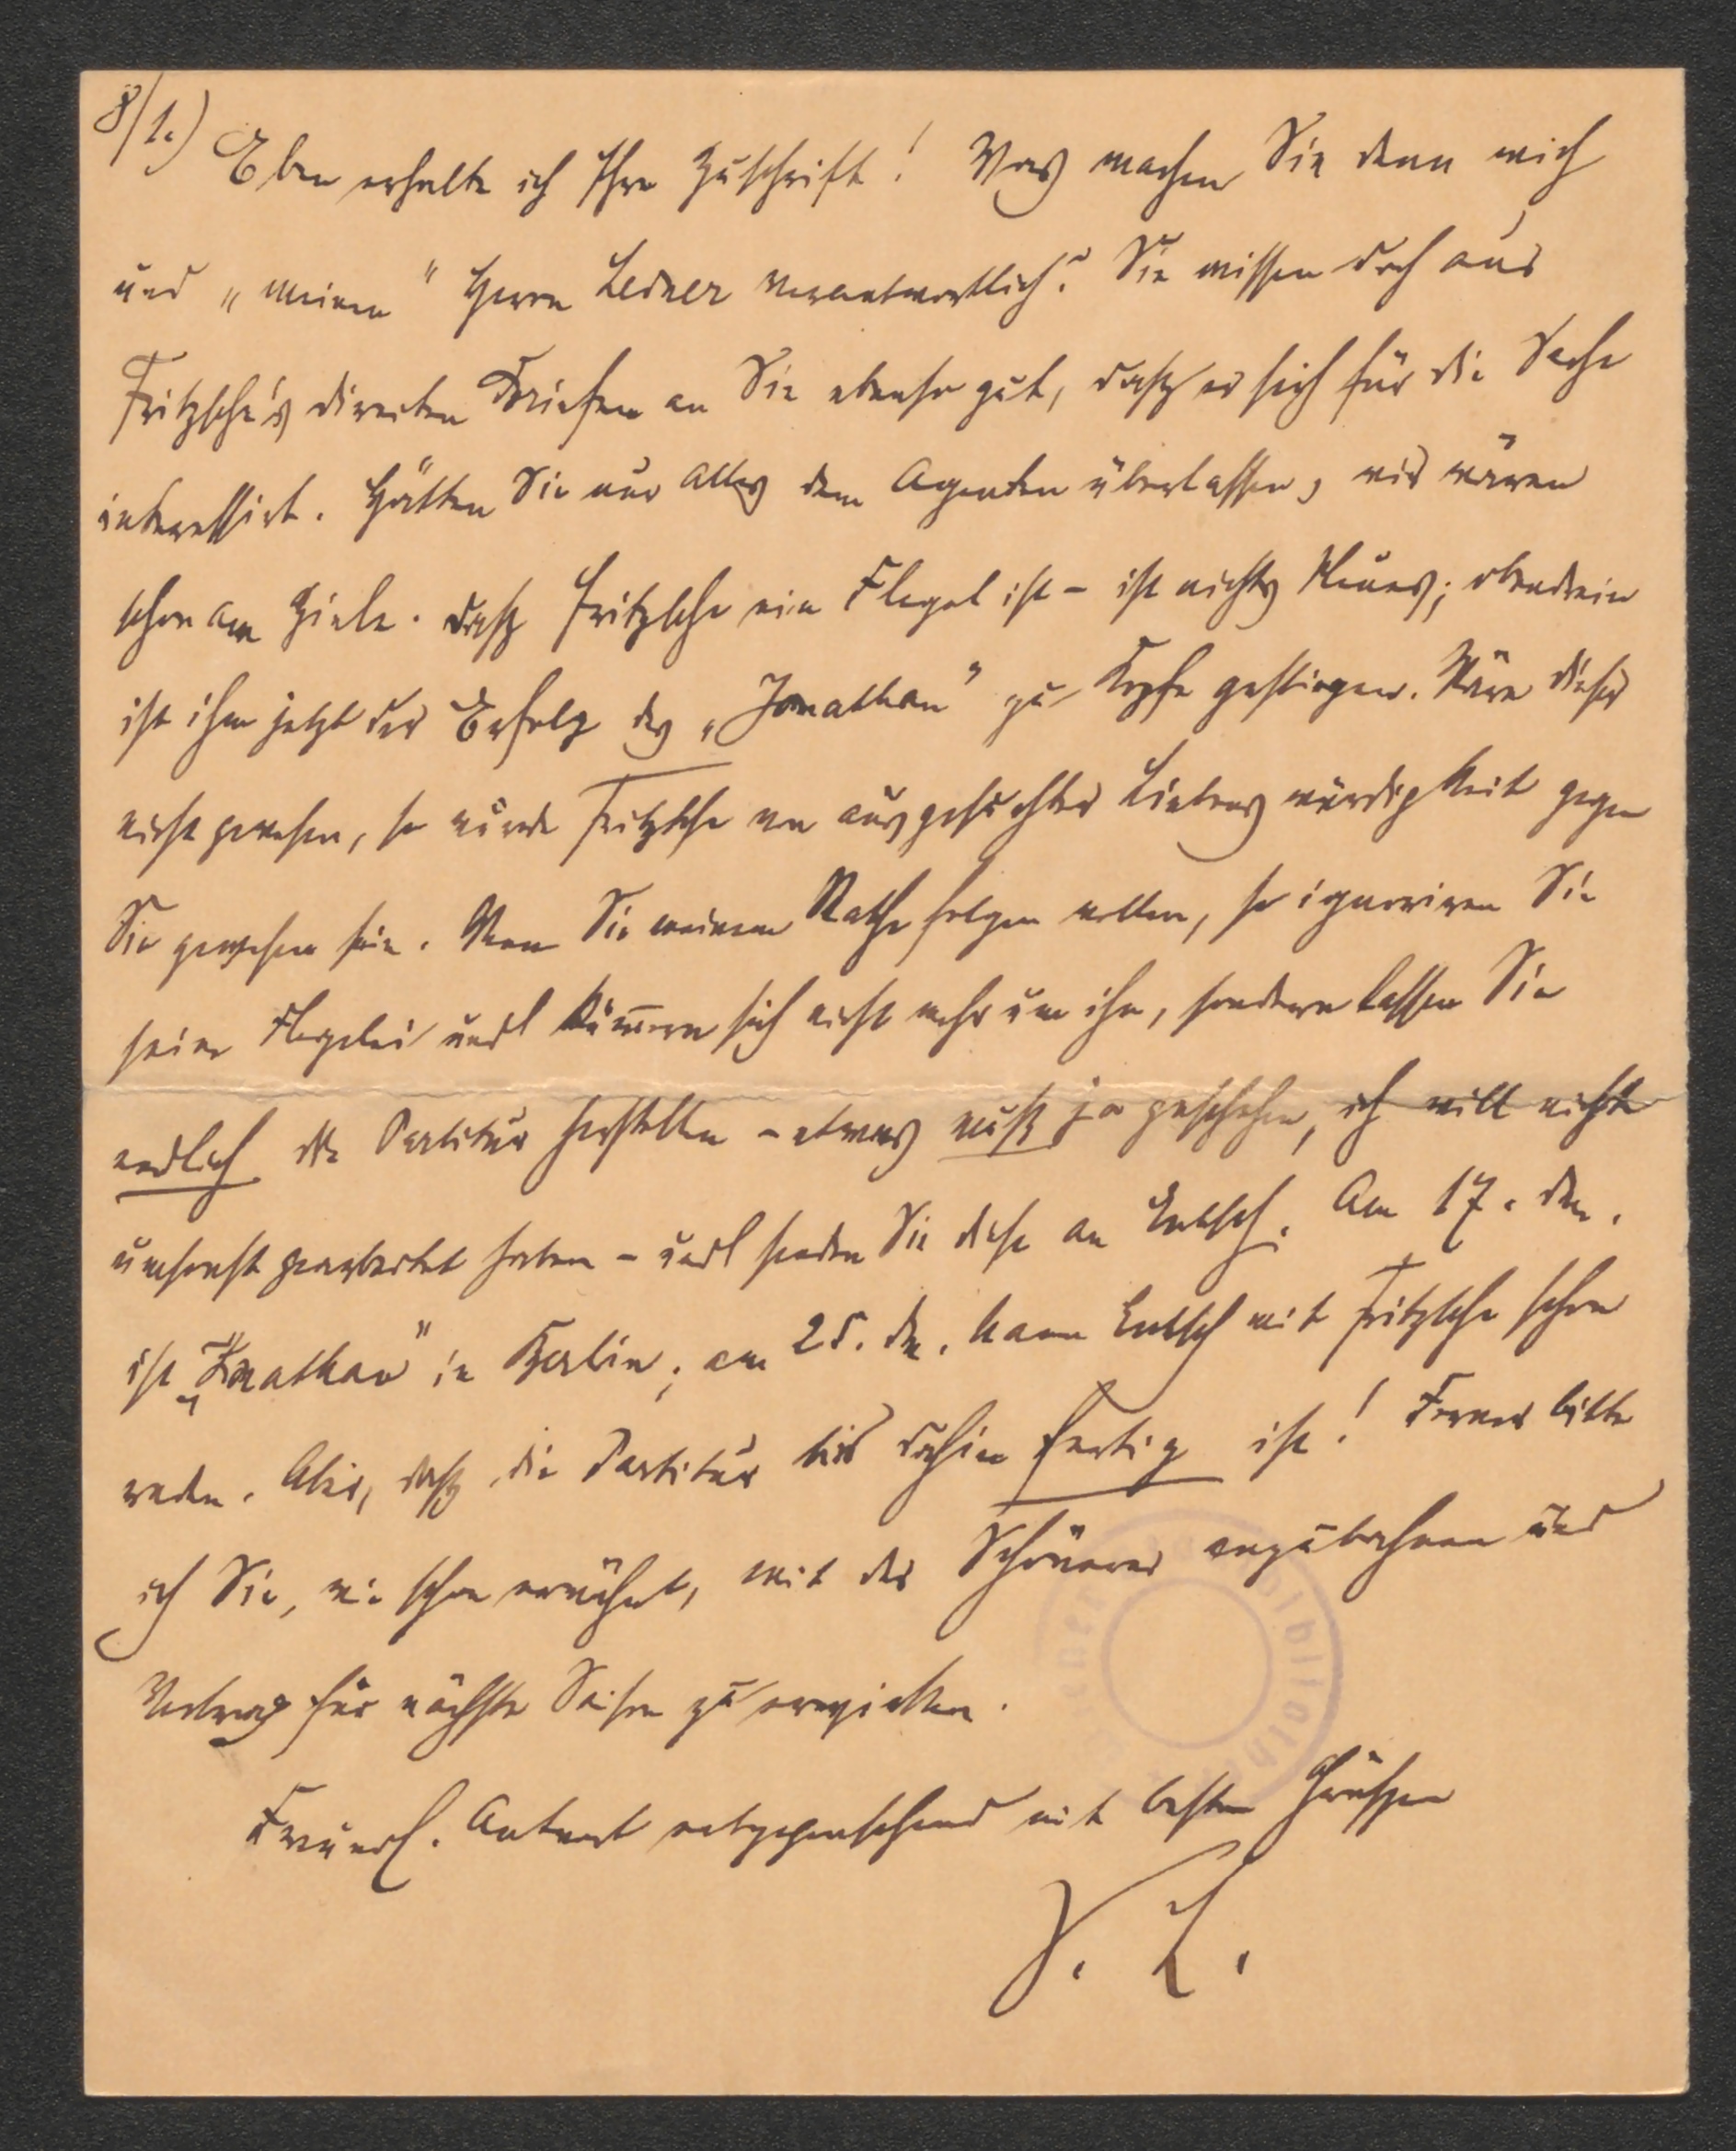 8/1.) Eben erhalte ich Ihre Zuschrift! Was machen Sie denn mich
und „meinen“ Herrn Ledner verantwortlich? Sie wissen doch aus
Fritzsche's directen Briefen an Sie ebenso gut, daß er sich für die Sache
interessirt. Hätten Sie nur Alles dem Agenten überlassen, wir wären
schon am Ziele. Daß Fritzsche ein Flegel ist – ist nichts Neues; obendrein
ist ihm jetzt der Erfolg des „Jonathan“ zu Kopfe gestiegen. Wäre dieser
nicht gewesen, so würde Fritzsche von ausgesuchter Liebenswürdigkeit gegen
Sie gewesen sein. Wenn Sie meinem Rathe folgen wollen, so ignoriren Sie
seine Flegelei und kümern sich nicht mehr um ihn, sondern lassen Sie
endlich die Partitur herstellen – etwas muß ja geschehen, ich will nicht
umsonst gearbeitet haben – und senden Sie diese an Entsch. Am 17. dM.
ist „Jonathan“ in Berlin; am 25. dM. kann Entsch mit Fritzsche schon
reden. Aber, daß die Partitur bis dahin fertig ist! Ferner bitte
ich Sie, wie schon erwähnt, mit der Schönerer anzubahnen und
Vertrag für nächste Saison zu erwirken.
Freundl. Antwort entgegensehend mit besten Grüßen
V. L.